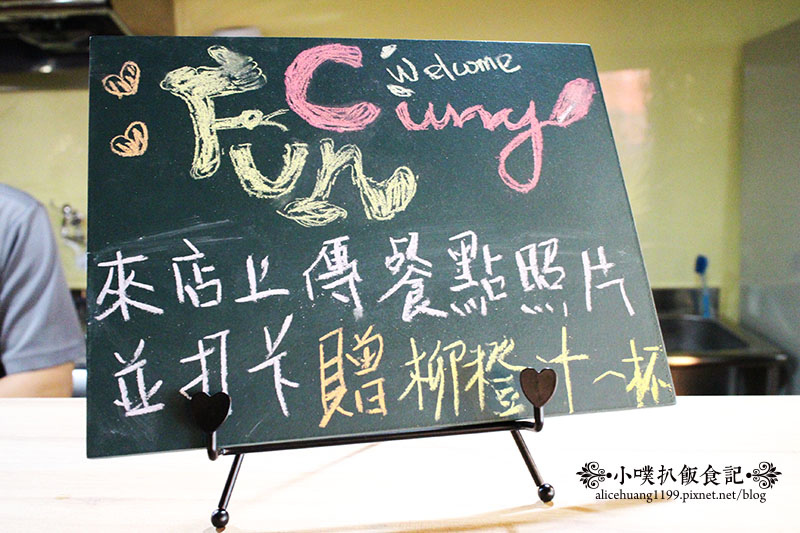 Welcome
Fun Curry
來店上傳餐點照片
並打卡贈柳橙汁一杯
小噗扒飯食記
alicehuang1199.pixnet.net/blog